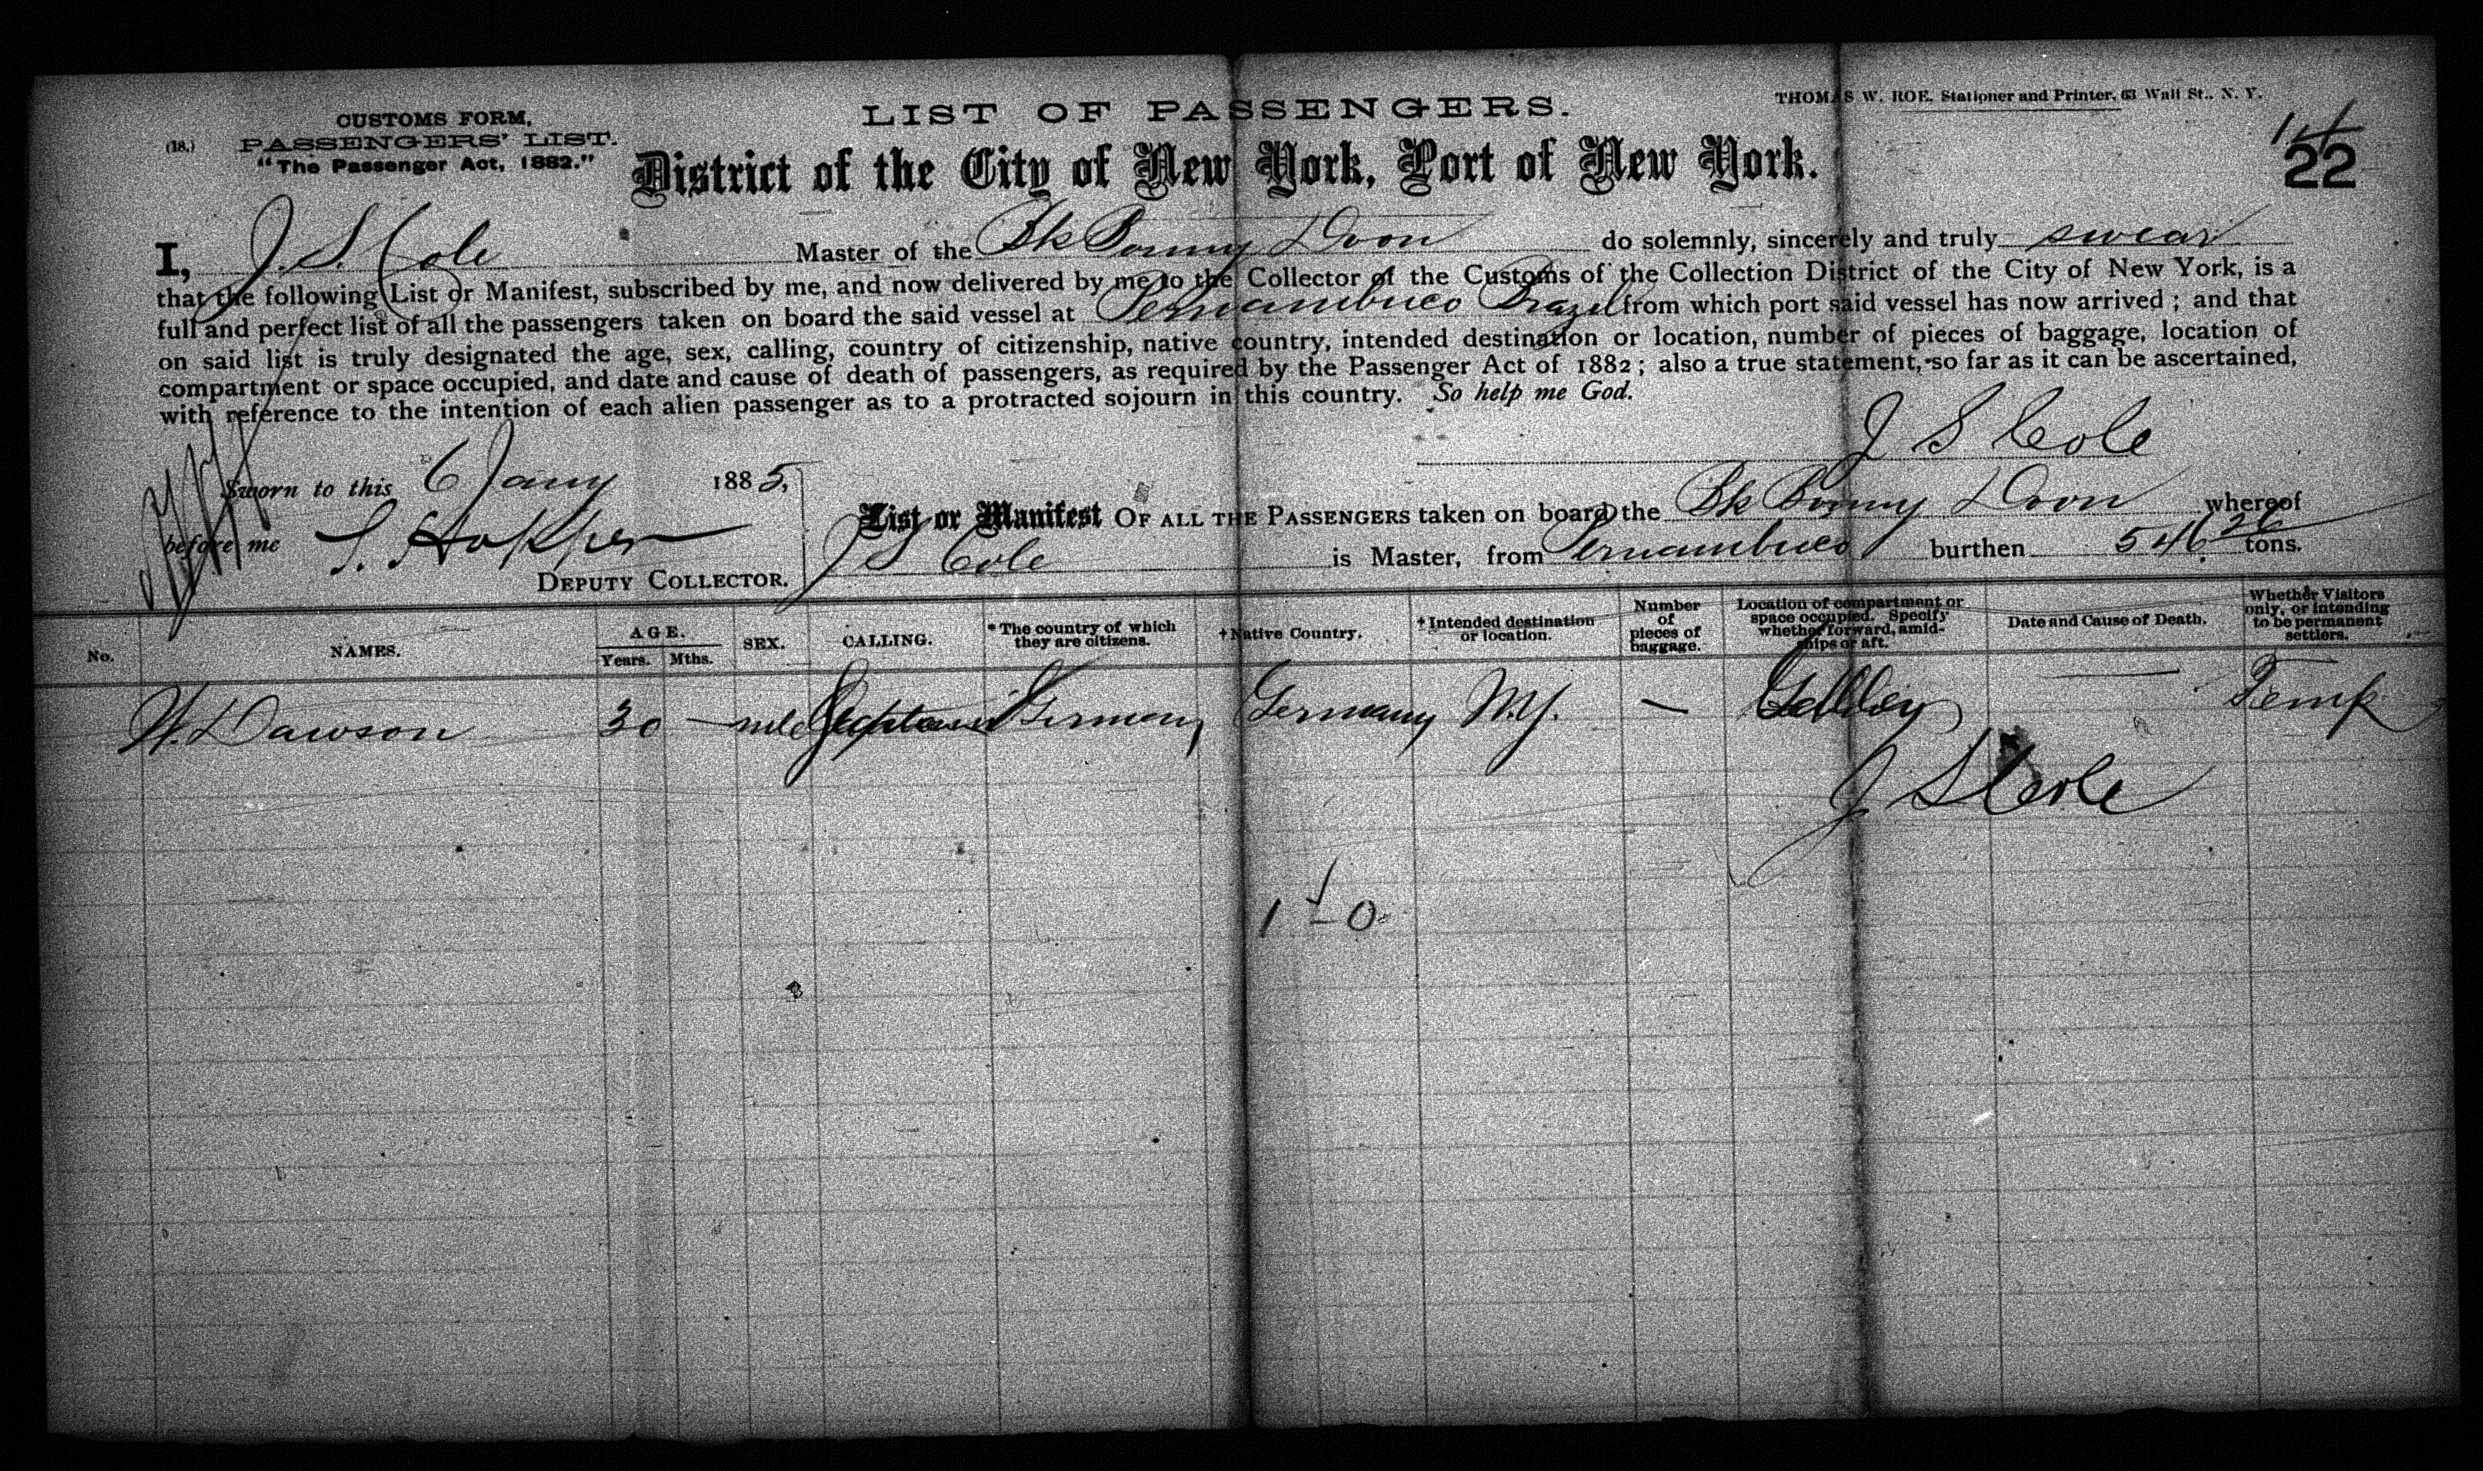 CUSTOMS FORM,
(18.) PASSENGERS' LIST.
"The Passenger Act, 1882."
LIST OF PASSENGERS.
THOMAS W. ROE, Stationer and Printer, 63 Wall St., N. Y.
District of the City of New York, Port of New York.
22
I, J. S. Cole Master of the Bk Bonny Doon do solemnly, sincerely and truly swear
that the following List or Manifest, subscribed by me, and now delivered by me to the Collector of the Customs of the Collection District of the City of New York, is a
full and perfect list of all the passengers taken on board the said vessel at Pernambuco Brazil from which port said vessel has now arrived; and that
on said list is truly designated the age, sex, calling, country of citizenship, native country, intended destination or location, number of pieces of baggage, location of
compartment or space occupied, and date and cause of death of passengers, as required by the Passenger Act of 1882; also a true statement, so far as it can be ascertained,
with reference to the intention of each alien passenger as to a protracted sojourn in this country. So help me God.
J S Cole
Sworn to this 6 Jany 1885,
before me S. Hopper
DEPUTY COLLECTOR.
List or Manifest OF ALL THE PASSENGERS taken on board the Bk Bonny Doon whereof
J S Cole is Master, from Pernambuco burthen 546 26 tons.
No. NAMES. AGE. Years. Mths. SEX. CALLING. * The country of which they are citizens. † Native Country. † Intended destination or location. Number of pieces of baggage. Location of compartment or space occupied. Specify whether forward, amidships or aft. Date and Cause of Death. Whether Visitors only, or intending to be permanent settlers.
W. Dawson 30 — Germany Germany N.Y. — — Temp
J S Cole
1 – 0